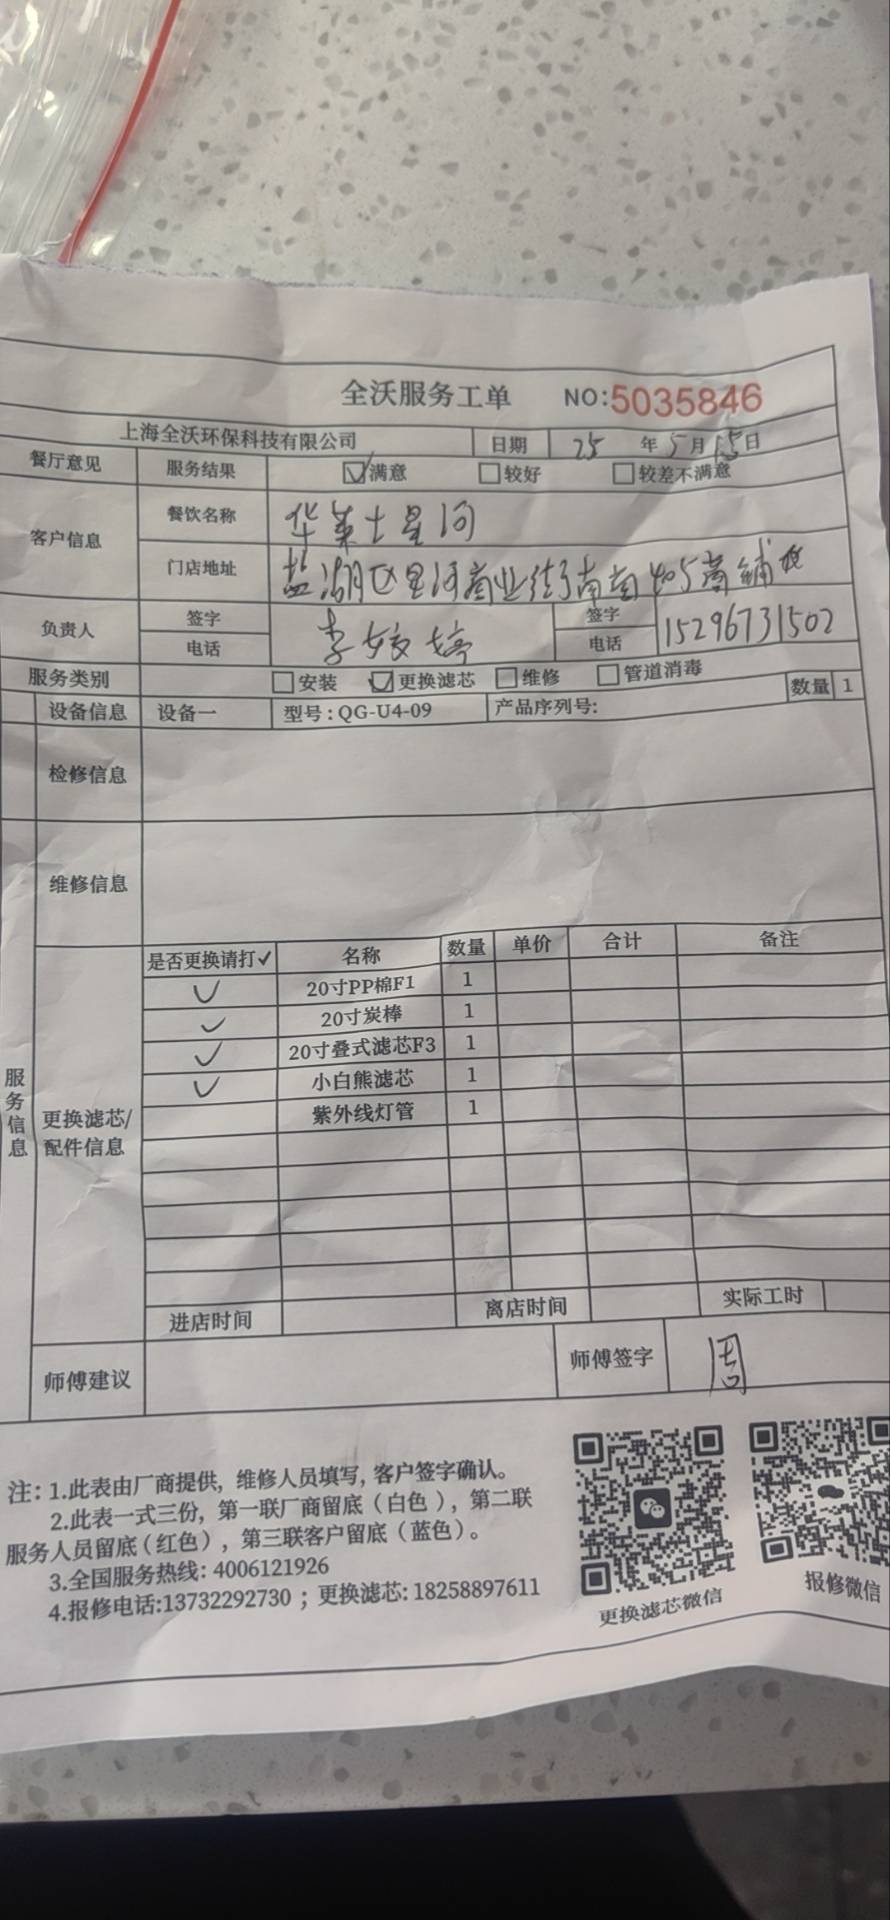 全沃服务工单 NO:5035846
上海全沃环保科技有限公司 日期 25 年 5 月 15 日
餐厅意见 服务结果 ☑满意 □较好 □较差不满意
客户信息 餐饮名称 华莱士星河
门店地址 盐湖区星河商业街南南405商铺
负责人 签字 李姣婷 签字
电话 电话 15296731502
服务类别 □安装 ☑更换滤芯 □维修 □管道消毒
设备信息 设备一 型号:QG-U4-09 产品序列号: 数量 1
检修信息
维修信息
服务信息
更换滤芯/配件信息
是否更换请打✓ 名称 数量 单价 合计 备注
✓ 20寸PP棉F1 1
✓ 20寸炭棒 1
✓ 20寸叠式滤芯F3 1
✓ 小白熊滤芯 1
紫外线灯管 1
进店时间 离店时间 实际工时
师傅建议 师傅签字 周
注: 1.此表由厂商提供, 维修人员填写, 客户签字确认。
2.此表一式三份, 第一联厂商留底(白色), 第二联
服务人员留底(红色), 第三联客户留底(蓝色)。
3.全国服务热线: 4006121926
4.报修电话:13732292730 ; 更换滤芯: 18258897611
更换滤芯微信 报修微信